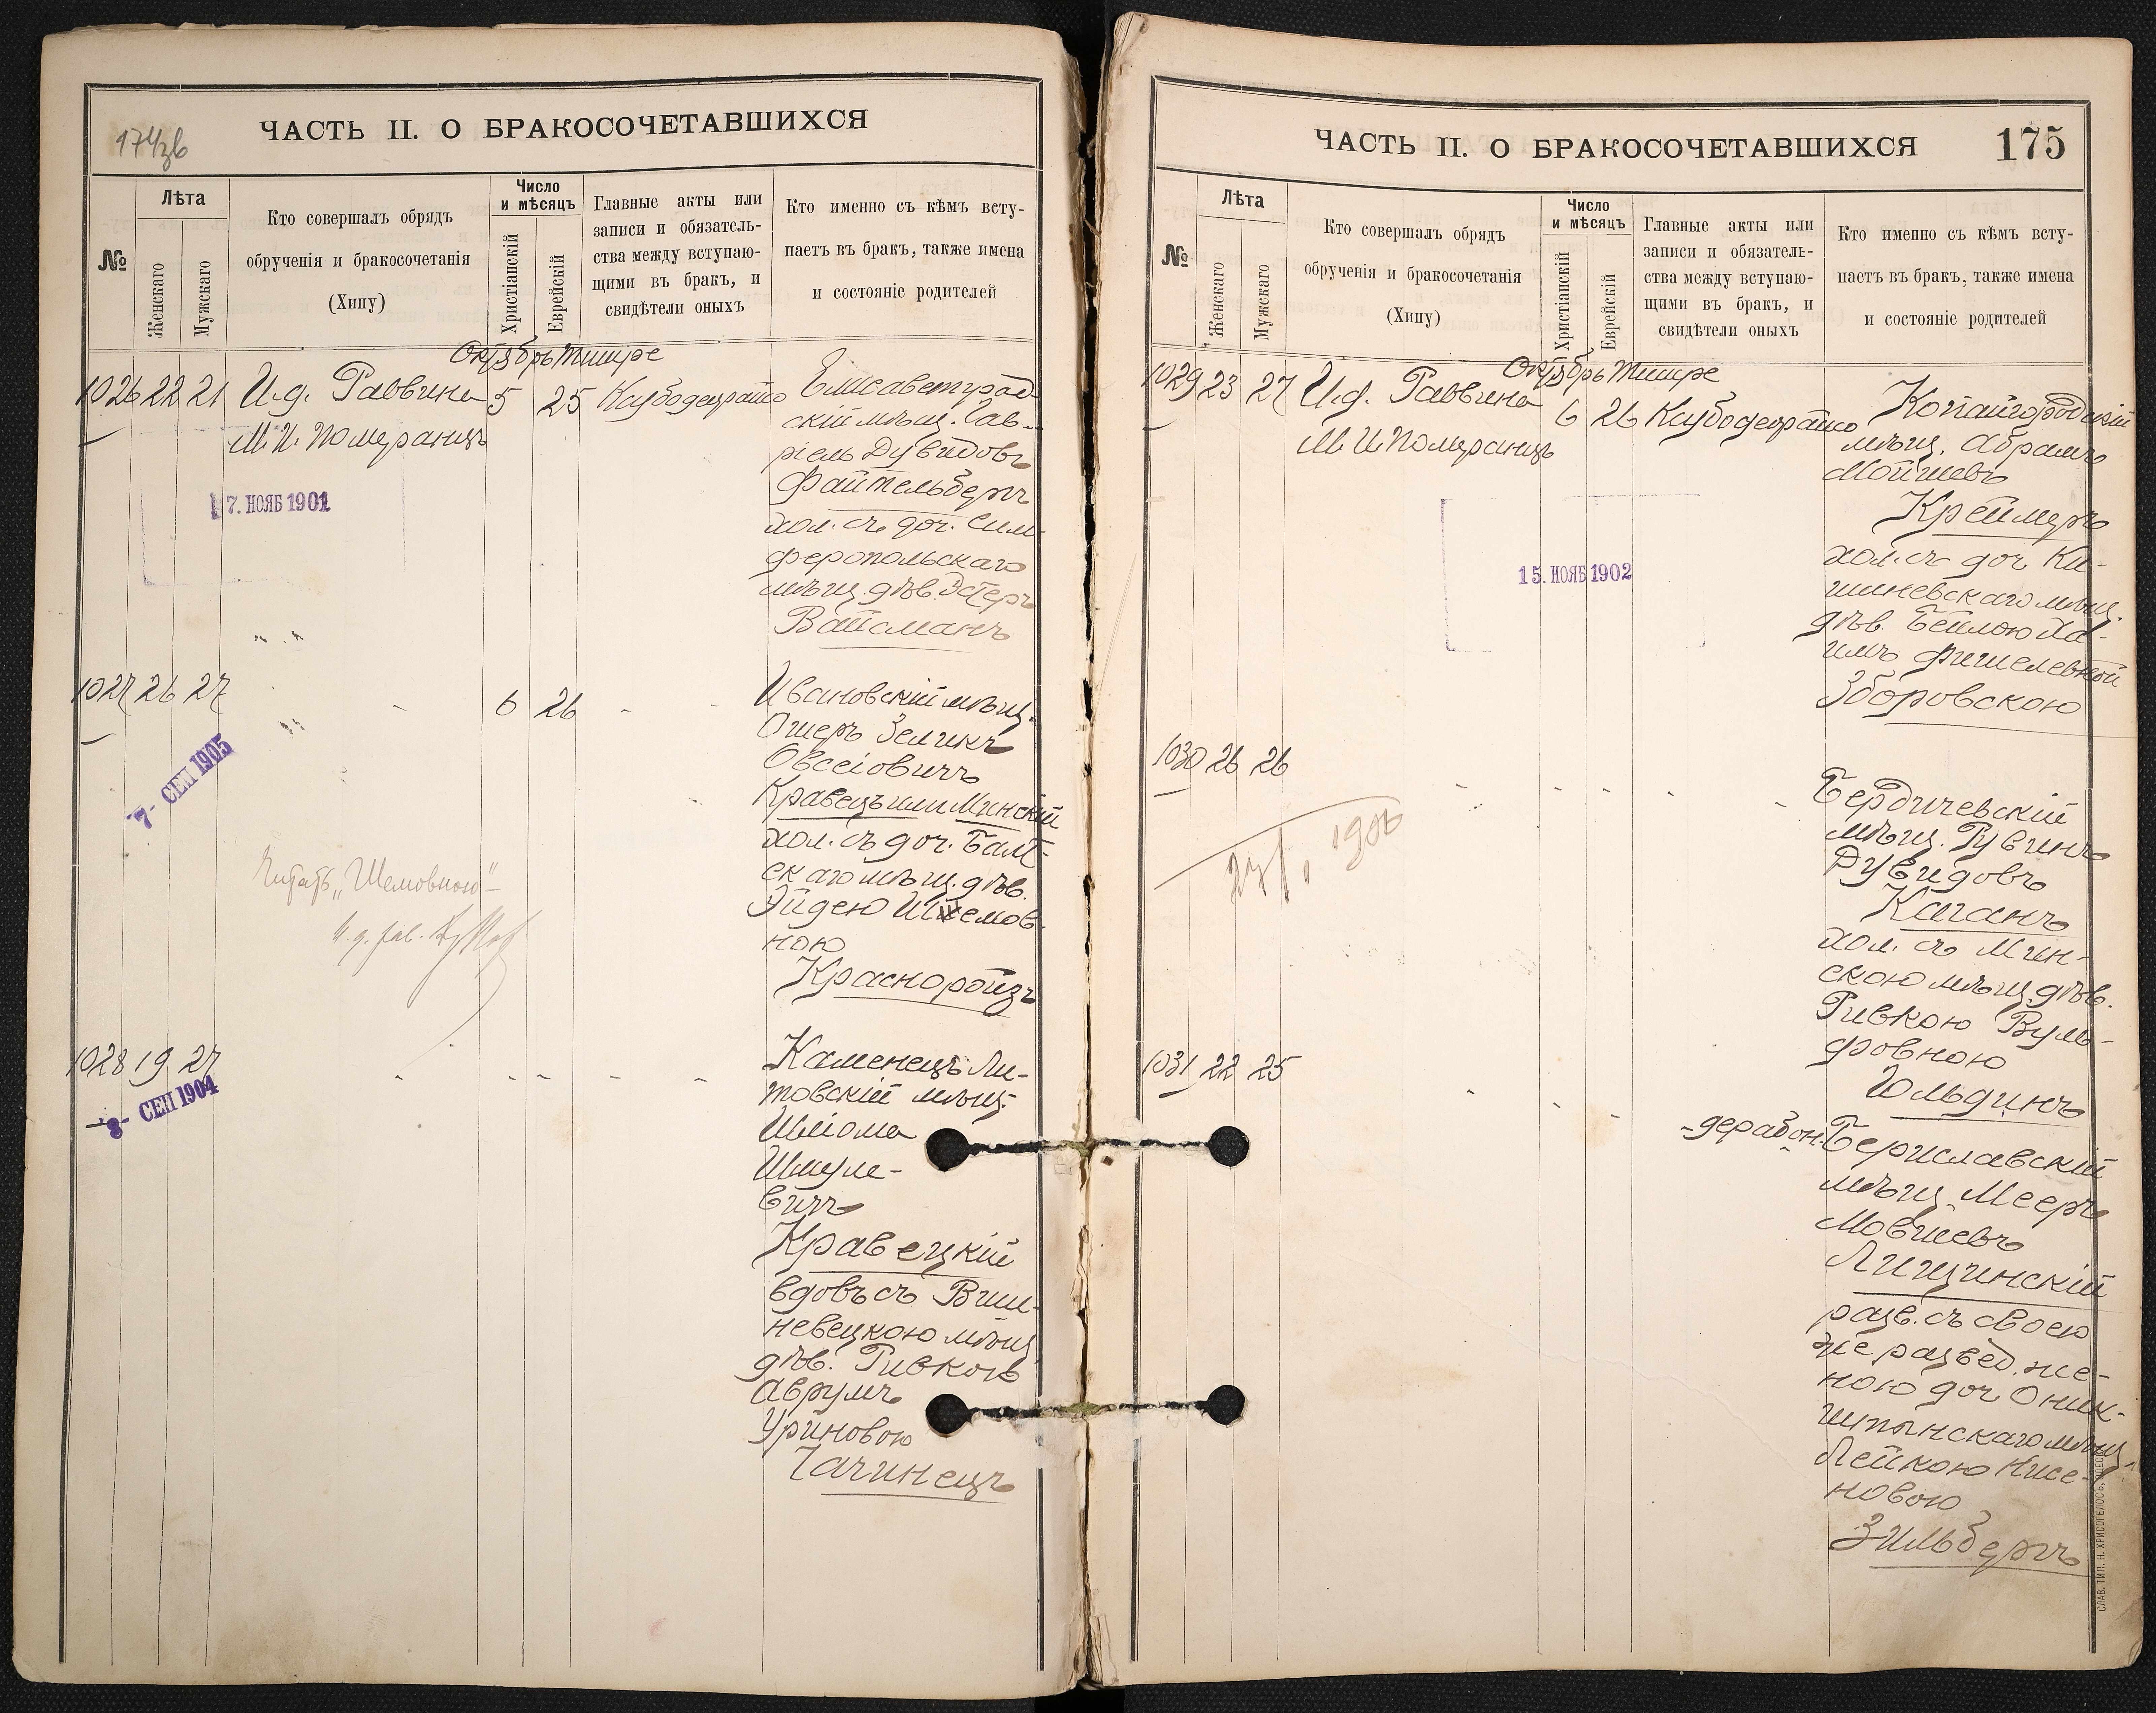 174/зв
ЧАСТЬ II. О БРАКОСОЧЕТАВШИХСЯ
№
Лѣта
Женскаго
Мужскаго
Кто совершалъ обрядъ
обрученія и бракосочетанія
(Хипу)
Число
и мѣсяцъ
Христіанскій
Еврейскій
Главные акты или
записи и обязатель-
ства между вступаю-
щими въ бракъ, и
свидѣтели оныхъ
Кто именно съ кѣмъ всту-
паетъ въ бракъ, также имена
и состояніе родителей
Октябрь Тишре
1026 22 21 И.д. Раввина 5 25
М. И. Померанцъ
7. НОЯБ 1901
Елисаветград
скій мѣщ. Гав-
ріель Дувидовъ
Файтельбергъ
хол. съ доч. Сим
феропольскаго
мѣщ. дѣв. Эстеръ
Вайсманъ
1027 26 27 - 6 26 - -
7- СЕП 1905
Ивановскій мѣщ.
Ошеръ Зеликъ
Овсіовичъ
Кравецъ или Минскій
хол. съ доч. Балт-
скаго мѣщ. дѣв.
Эйдею Шлемов-
ною
Красноройзъ
Читать „Шемовною“
И. д. рав.
1028 19 27 - - - - -
8- СЕП 1904
Каменецъ Ли-
товскій мѣщ.
Шліома
Шмуле-
вичъ
Кравецкій
вдовъ съ Виш-
невецкою мѣщ.
дѣв. Ривкою
Аврумъ
Уриновою
Чачинецъ
ЧАСТЬ II. О БРАКОСОЧЕТАВШИХСЯ
175
№
Лѣта
Женскаго
Мужскаго
Кто совершалъ обрядъ
обрученія и бракосочетанія
(Хипу)
Число
и мѣсяцъ
Христіанскій
Еврейскій
Главные акты или
записи и обязатель-
ства между вступаю-
щими въ бракъ, и
свидѣтели оныхъ
Кто именно съ кѣмъ всту-
паетъ въ бракъ, также имена
и состояніе родителей
Октябрь Тишре
1029 23 27 И.д. Раввина 6 26
М. И. Померанцъ
15. НОЯБ 1902
Копайгородскій
мѣщ. Абрамъ
Мойшевъ
Креймеръ
хол. съ доч. Ки-
шиневскаго мѣщ.
дѣв. Бейлою Ха-
имъ Фишелевной
Зборовскою
1030 26 26 - - - - -
1906
Бердичевскій
мѣщ. Рувинъ
Дувидовъ
Каганъ
хол. съ Мин-
скою мѣщ. дѣв.
Ривкою Вуль-
фовною
Гольдинъ
1031 22 25 - - -
Бериславскій
мѣщ. Мееръ
Мовшевъ
Лищинскій
разв. съ своею
же развед. же-
ною доч. Оник-
штынскаго мѣщ.
Лейкою Нисе-
новою
Зильбергъ
СЛАВ. ТИП. Н. ХРИСОГЕЛОСЪ, ОДЕССА